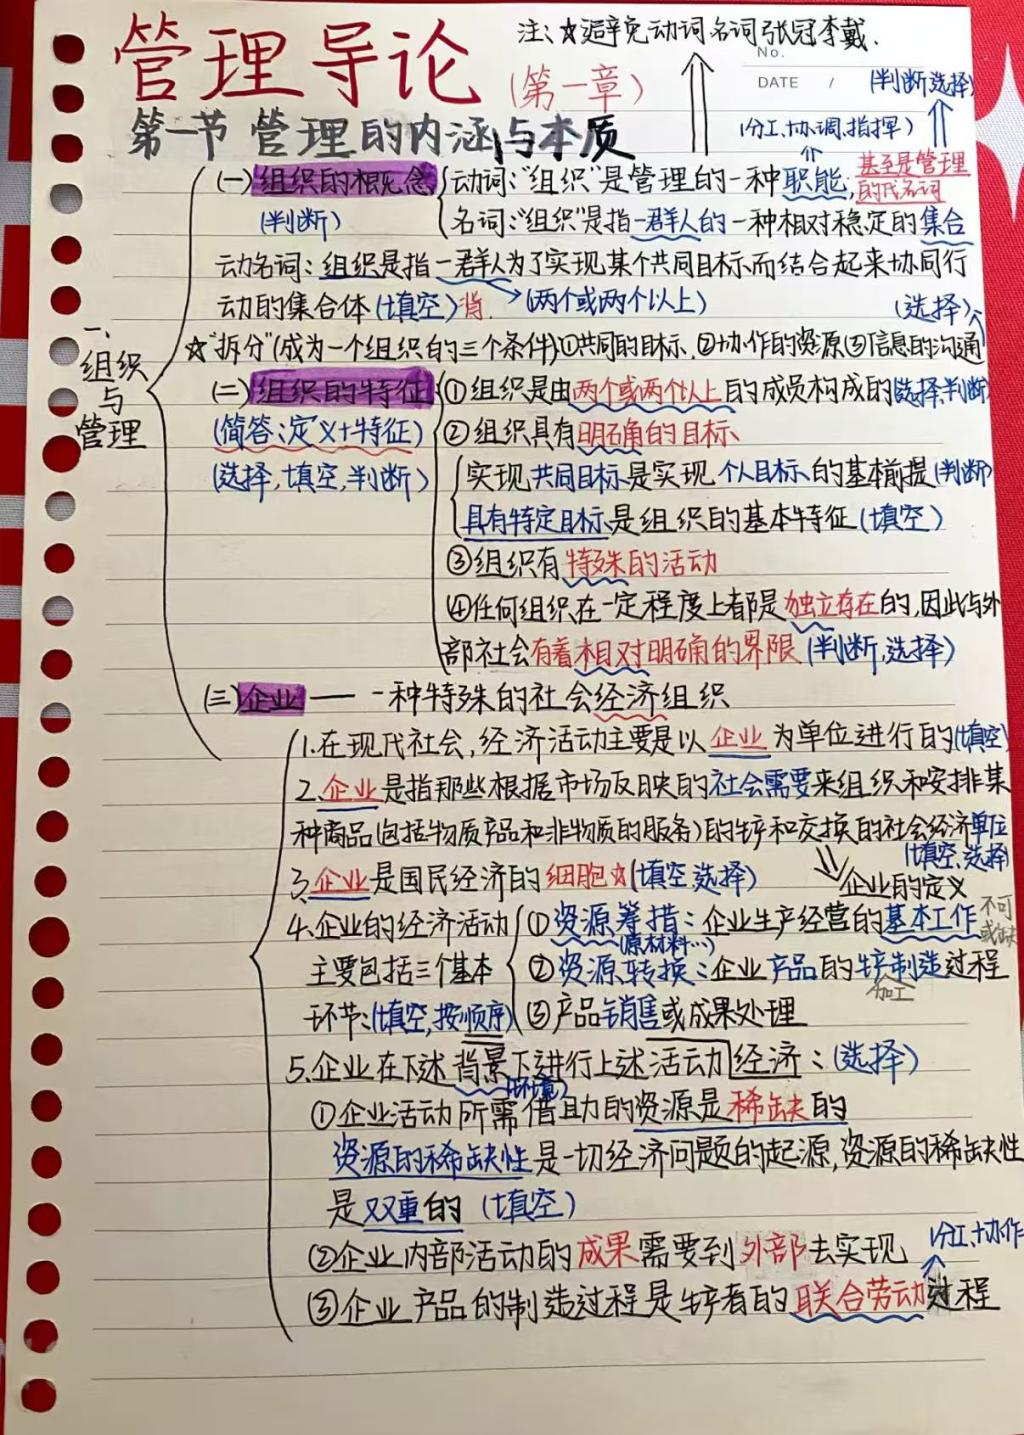 注:☆避免动词名词张冠李戴.
管理导论(第一章)
No.
DATE /
(判断选择)
(分工,协调,指挥)
第一节 管理的内涵与本质
一、组织与管理
(一)组织的概念
(判断)
动词:“组织”是管理的一种职能,甚至是管理的代名词
名词:“组织”是指一群人的一种相对稳定的集合
动名词:组织是指一群人为了实现某个共同目标而结合起来协同行
动的集合体(填空)背.
(两个或两个以上)
(选择)
☆“拆分”(成为一个组织的三个条件)①共同的目标,②协作的资源③信息的沟通
(二)组织的特征
(简答:定义+特征)
(选择,填空,判断)
①组织是由两个或两个以上的成员构成的(选择,判断)
②组织具有明确的目标、
实现共同目标是实现个人目标的基本前提(判断)
具有特定目标是组织的基本特征(填空)
③组织有特殊的活动
④任何组织在一定程度上都是独立存在的,因此与外
部社会有着相对明确的界限(判断,选择)
(三)企业——一种特殊的社会经济组织
1.在现代社会,经济活动主要是以企业为单位进行的(填空)
2.企业是指那些根据市场反映的社会需要来组织和安排某
种商品(包括物质产品和非物质的服务)的生产和交换的社会经济单位
(填空、选择)
企业的定义
3.企业是国民经济的细胞☆(填空,选择)
4.企业的经济活动
主要包括三个基本
环节:(填空,按顺序)
①资源筹措:企业生产经营的基本工作
不可或缺
(原材料…)
②资源转换:企业产品的生产制造过程
加工
③产品销售或成果处理
5.企业在下述背景下进行上述活动经济:(选择)
(环境)
①企业活动所需借助的资源是稀缺的
资源的稀缺性是一切经济问题的起源,资源的稀缺性
是双重的(填空)
②企业内部活动的成果需要到外部去实现
分工,协作
③企业产品的制造过程是生产者的联合劳动过程